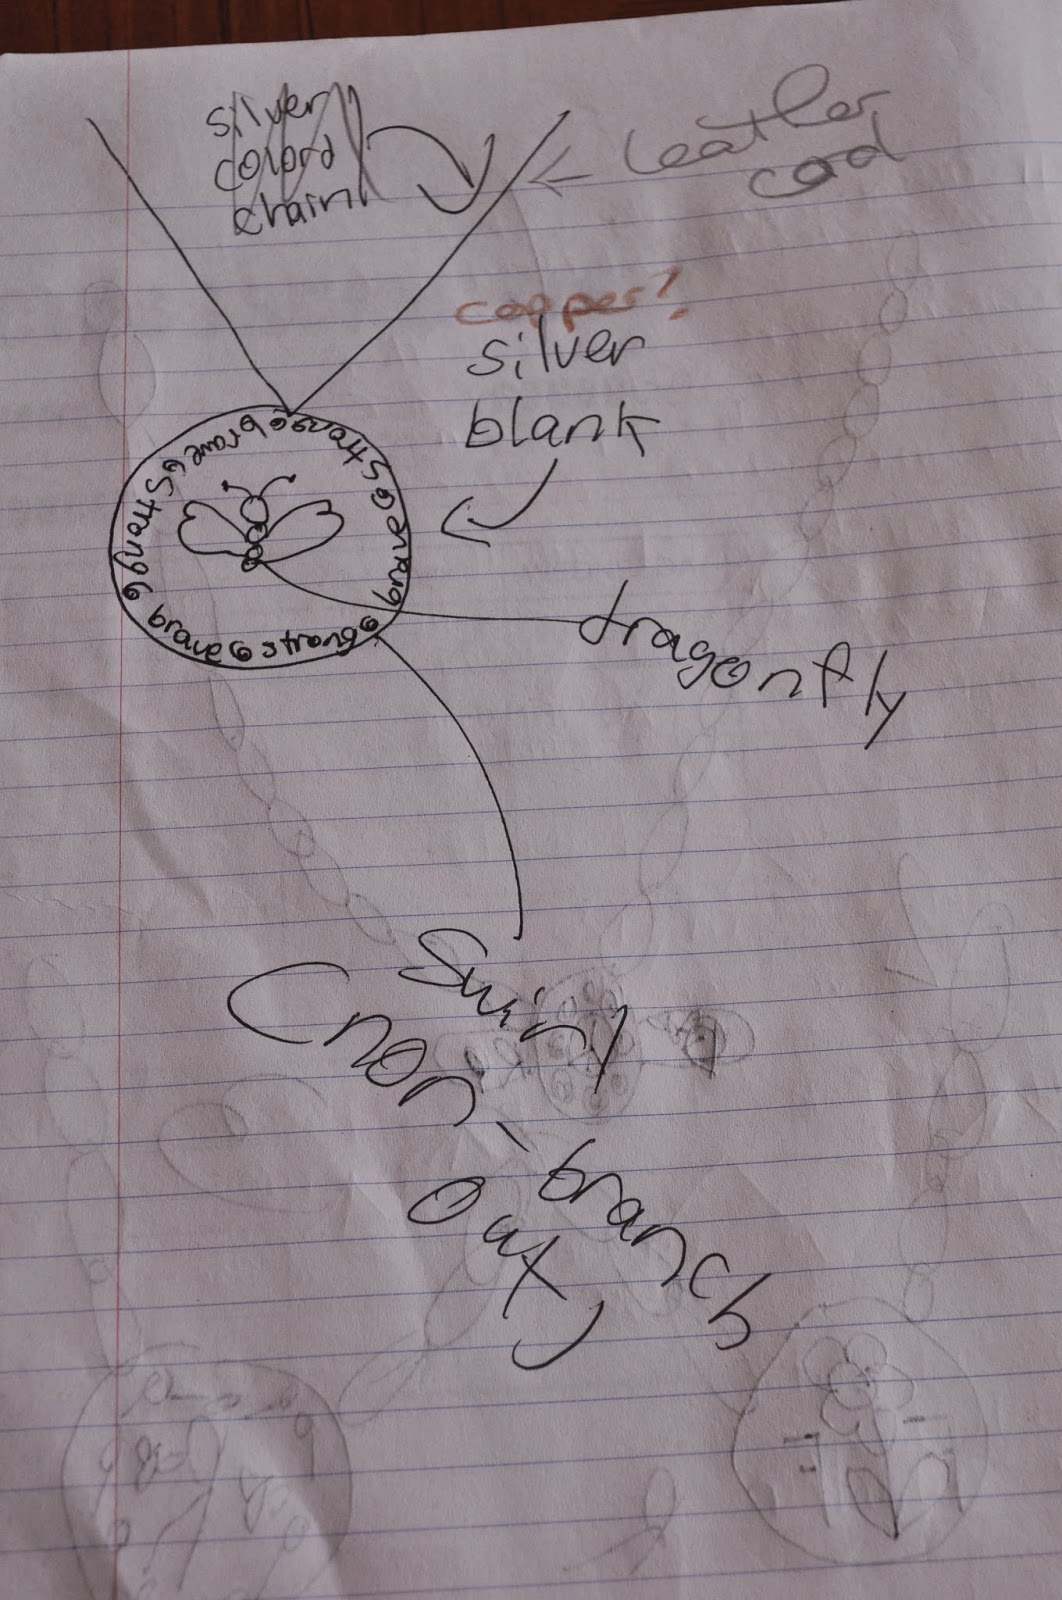 silver
colord
chain
leather
cord
copper?
silver
blank
strong brave strong brave strong brave strong brave
dragonfly
swirl
(non-branch
out)